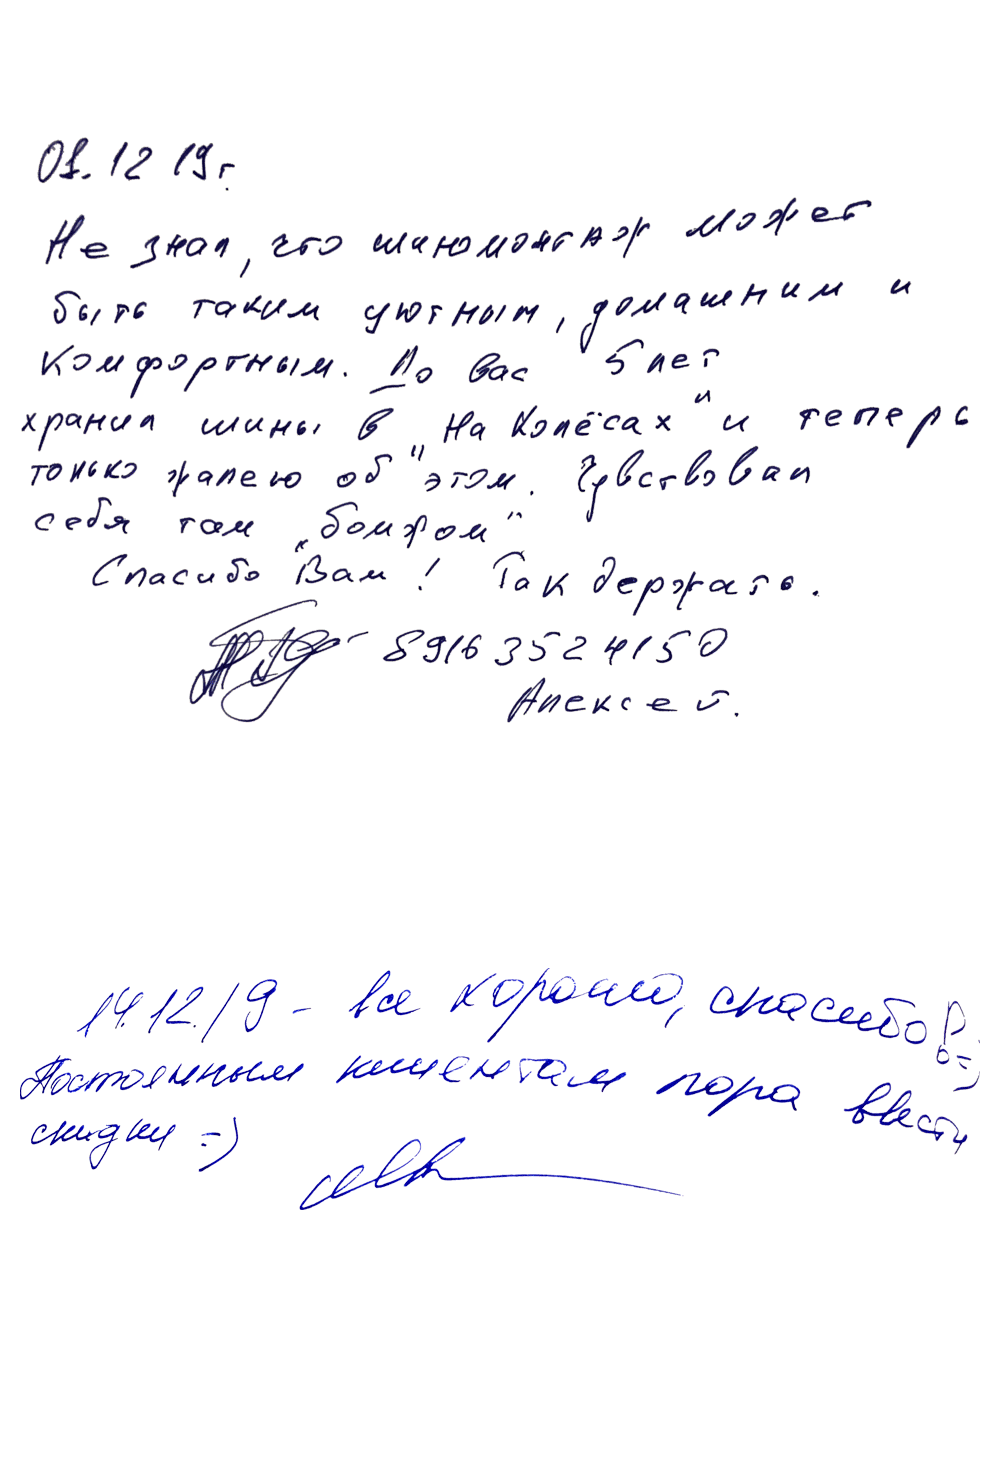 01.12 19г.
Не знал, что шиномонтаж может
быть таким уютным, домашним и
комфортным. До вас 5 лет
хранил шины в "На Колёсах" и теперь
только жалею об этом. Чувствовал
себя там "бомжом"
Спасибо Вам! Так держать.
89163524150
Алексей.
14.12.19 - все хорошо, спасибо! =)
Постоянным клиентам пора ввести
скидки =)